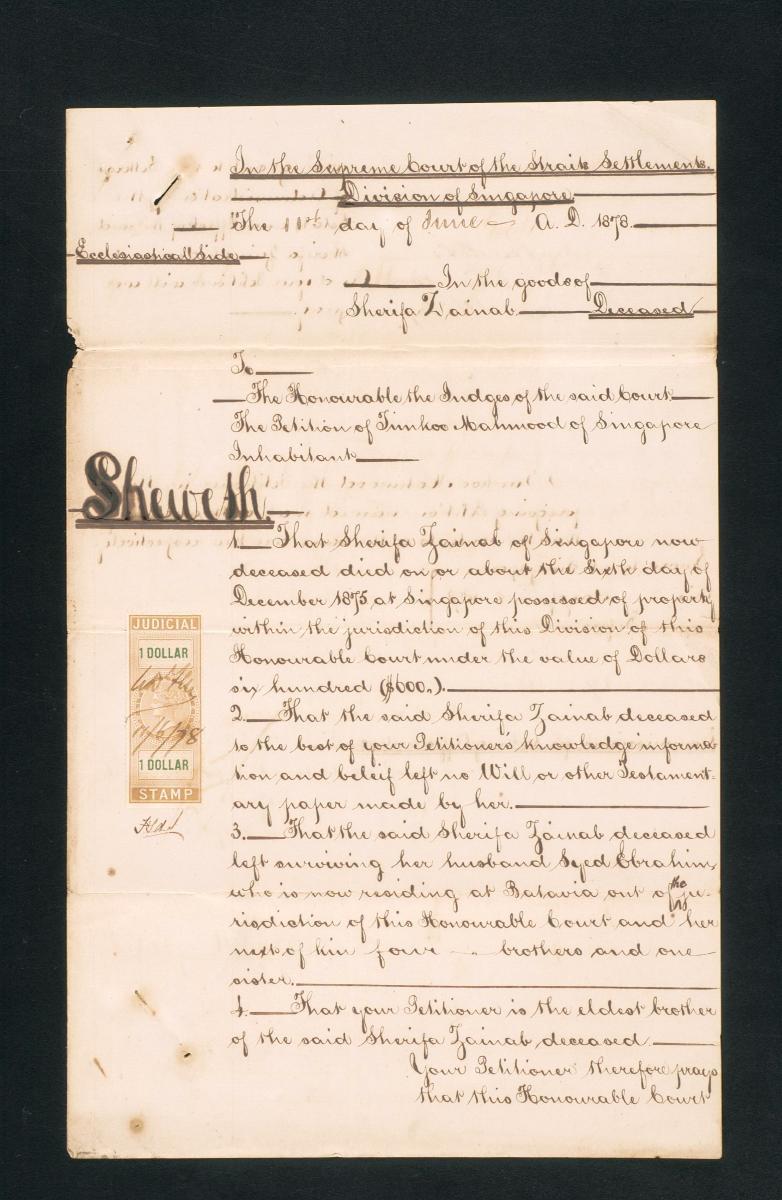 In the Supreme Court of the Straits Settlements.
Division of Singapore.
The 11th day of June A. D. 1878.
Ecclesiastical Side
In the goods of
Sherifa Zainab Deceased
To
The Honourable the Judges of the said Court
The Petition of Tunkoo Mahmood of Singapore
Inhabitant
Sheweth.
1. That Sherifa Zainab of Singapore now
deceased died on or about the Sixth day of
December 1875 at Singapore possessed of property
within the jurisdiction of this Division of this
Honourable Court under the value of Dollars
six hundred ($600.).
2. That the said Sherifa Zainab deceased
to the best of your Petitioner's knowledge informa-
tion and beleif left no Will or other Testament-
ary paper made by her.
3. That the said Sherifa Zainab deceased
left surviving her husband Syed Ebrahim,
who is now residing at Batavia out of the ju-
risdiction of this Honourable Court and her
next of kin four brothers and one
sister.
4. That your Petitioner is the eldest brother
of the said Sherifa Zainab deceased.
Your Petitioner therefore prays
that this Honourable Court
JUDICIAL
1 DOLLAR
11/6/78
1 DOLLAR
STAMP